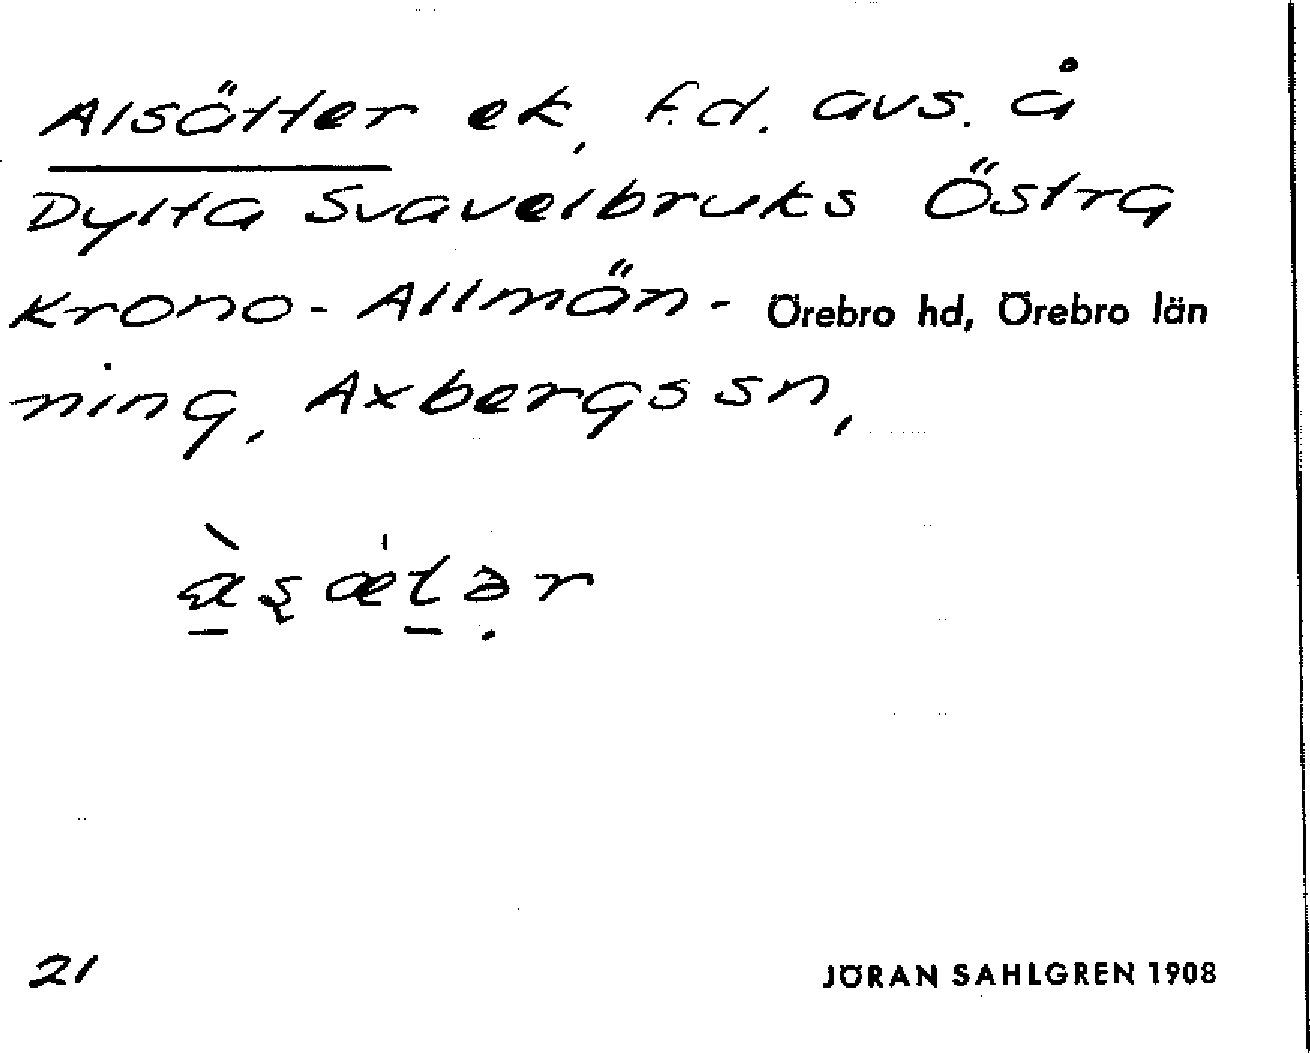 Alsätter ek, f.d. avs. å
Dylta Svavelbruks Östra
Krono-Allmän- Örebro hd, Örebro län
ning, Axbergs sn,
21
JÖRAN SAHLGREN 1908